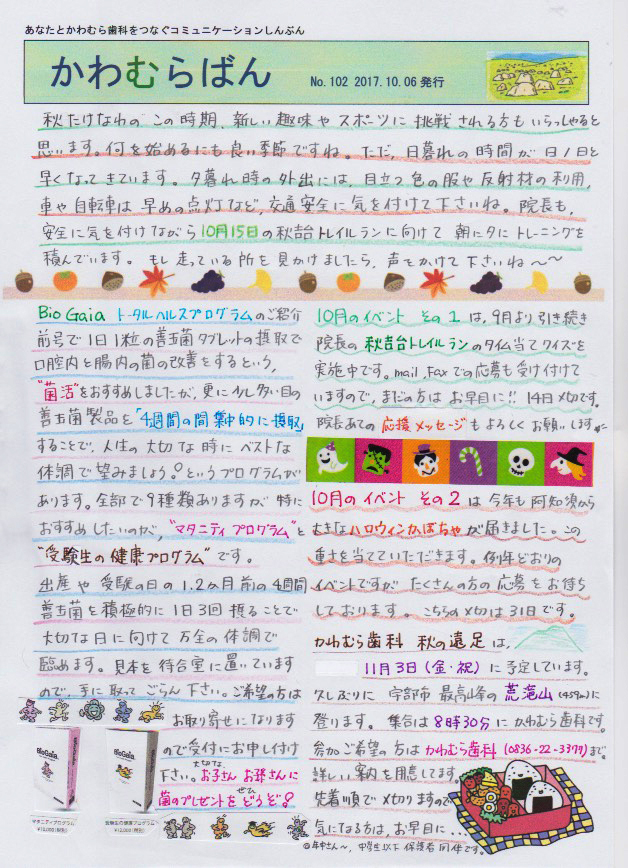 あなたとかわむら歯科をつなぐコミュニケーションしんぶん
かわむらばん
No.102 2017.10.06 発行
秋たけなわの この時期、新しい趣味や スポーツに 挑戦 される方も いらっしゃると
思います。何を始めるにも良い季節ですね。ただ、日暮れの 時間が 日1日と
早くなってきています。夕暮れ時の外出には、目立つ色の服や反射材の利用、
車や自転車は 早めの点灯など、交通安全に気を付けて下さいね。院長も、
安全に気を付けながら10月15日の秋吉台トレイルランに向けて 朝に夕にトレーニングを
積んでいます。 もし 走っている 所を 見かけましたら、声をかけて 下さいね〜〜
Bio Gaia トータルヘルスプログラムのご紹介
前号で1日1粒の善玉菌タブレットの摂取で
口腔内と腸内の菌の改善をするという、
"菌活"をおすすめしましたが、更に少し多い目の
善玉菌製品を「4週間の間集中的に摂取」
することで、人生の 大切な 時に ベストな
体調で望みましょう!というプログラムが
あります。全部で9種類ありますが 特に
おすすめしたいのが、"マタニティプログラム"と
"受験生の健康プログラム"です。
出産や 受験の日の 1.2ヵ月前の4週間
善玉菌を積極的に1日3回 摂ることで
大切な日に向けて 万全の体調で
臨めます。見本を待合室に置いています
ので、手に取って ごらん下さい。ご希望の方は
お取り寄せになります
ので受付にお申し付け
下さい。大切なお子さん お孫さんに
菌のプレゼントを ぜひどうぞ!
BioGaia
BioGaia
マタニティプログラム
¥12,000(税別)
受験生の健康プログラム
¥12,000(税別)
10月のイベント その1 は、9月より引き続き
院長の 秋吉台トレイルランのタイム当てクイズを
実施中です。mail,Faxでの応募も受け付けて
いますので、まだの方は お早目に!! 14日〆切です。
院長あての 応援メッセージもよろしく お願いします
10月のイベント その2 は 今年も 阿知須から
大きなハロウィンかぼちゃが届きました。この
重さを当てていただきます。例年どおりの
イベントですが たくさんの方の応募を お待ち
しております。こちらの〆切は31日です。
かわむら歯科 秋の遠足 は、
11月3日(金・祝)に予定しています。
久しぶりに 宇部市 最高峰の 荒滝山(459m)に
登ります。集合は8時30分に かわむら歯科です。
参加ご希望の方は かわむら歯科(0836-22-3377)まで。
詳しい案内を用意してます。
先着順で〆切りますので
気になる方は、お早目に...
◎年中さん〜、中学生以下 保護者同伴です。